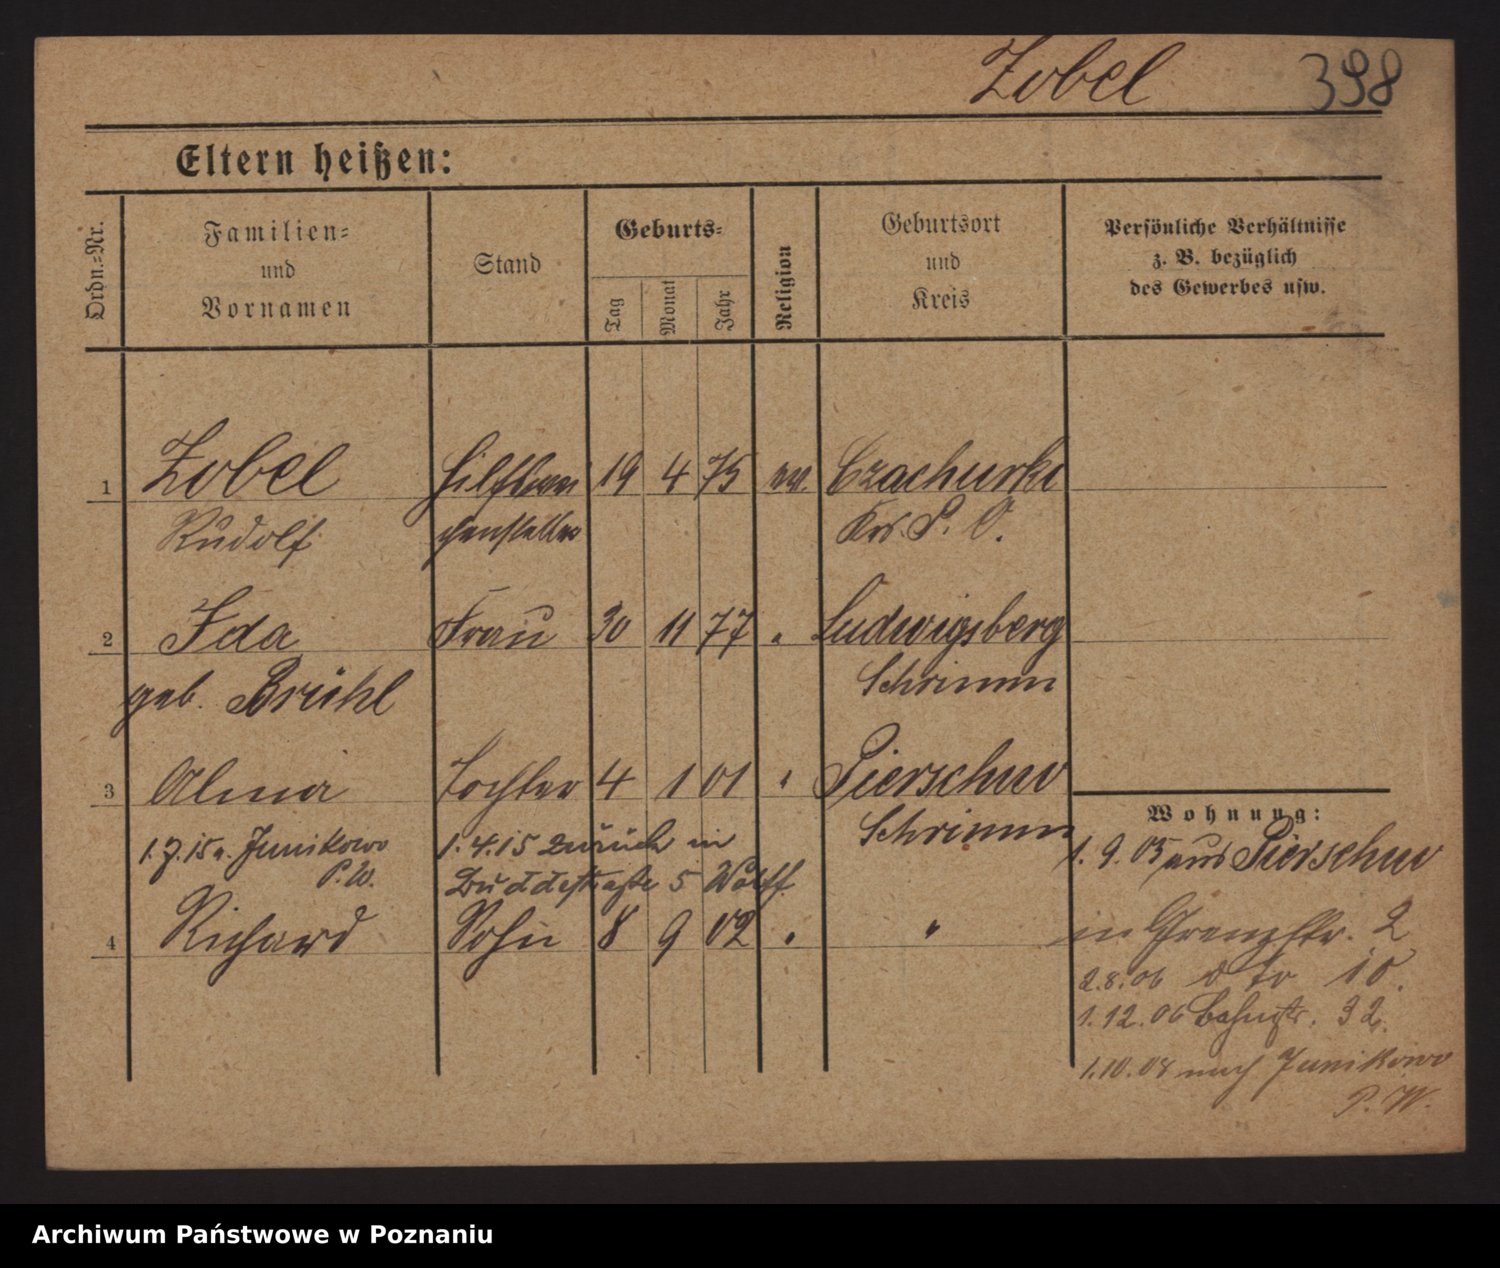 Zobel 398
Eltern heißen:
Ordn.-Nr.
Familien-
und
Vornamen
Stand
Geburts-
Tag
Monat
Jahr
Religion
Geburtsort
und
Kreis
Persönliche Verhältnisse
z. B. bezüglich
des Gewerbes usw.
1 Zobel Hilfswei 19 4 75 ev. Czachurki
Rudolf chensteller Krs. P. O.
2 Ida Frau 30 11 77 " Ludwigsberg
geb. Brühl Schrimm
3 Alma Tochter 4 1 01 " Pierschno
Schrimm
Wohnung:
1.7.15 n. Junikowo 1.4.15 zurück in
P.W. Buddestraße 5 Wolff
1.9.05 aus Pierschno
4 Richard Sohn 8 9 02 " "
in Grenzstr. 2
2.8.06 dto 10.
1.12.06 Bahnstr. 32.
1.10.08 nach Junikowo
P. W.
Archiwum Państwowe w Poznaniu